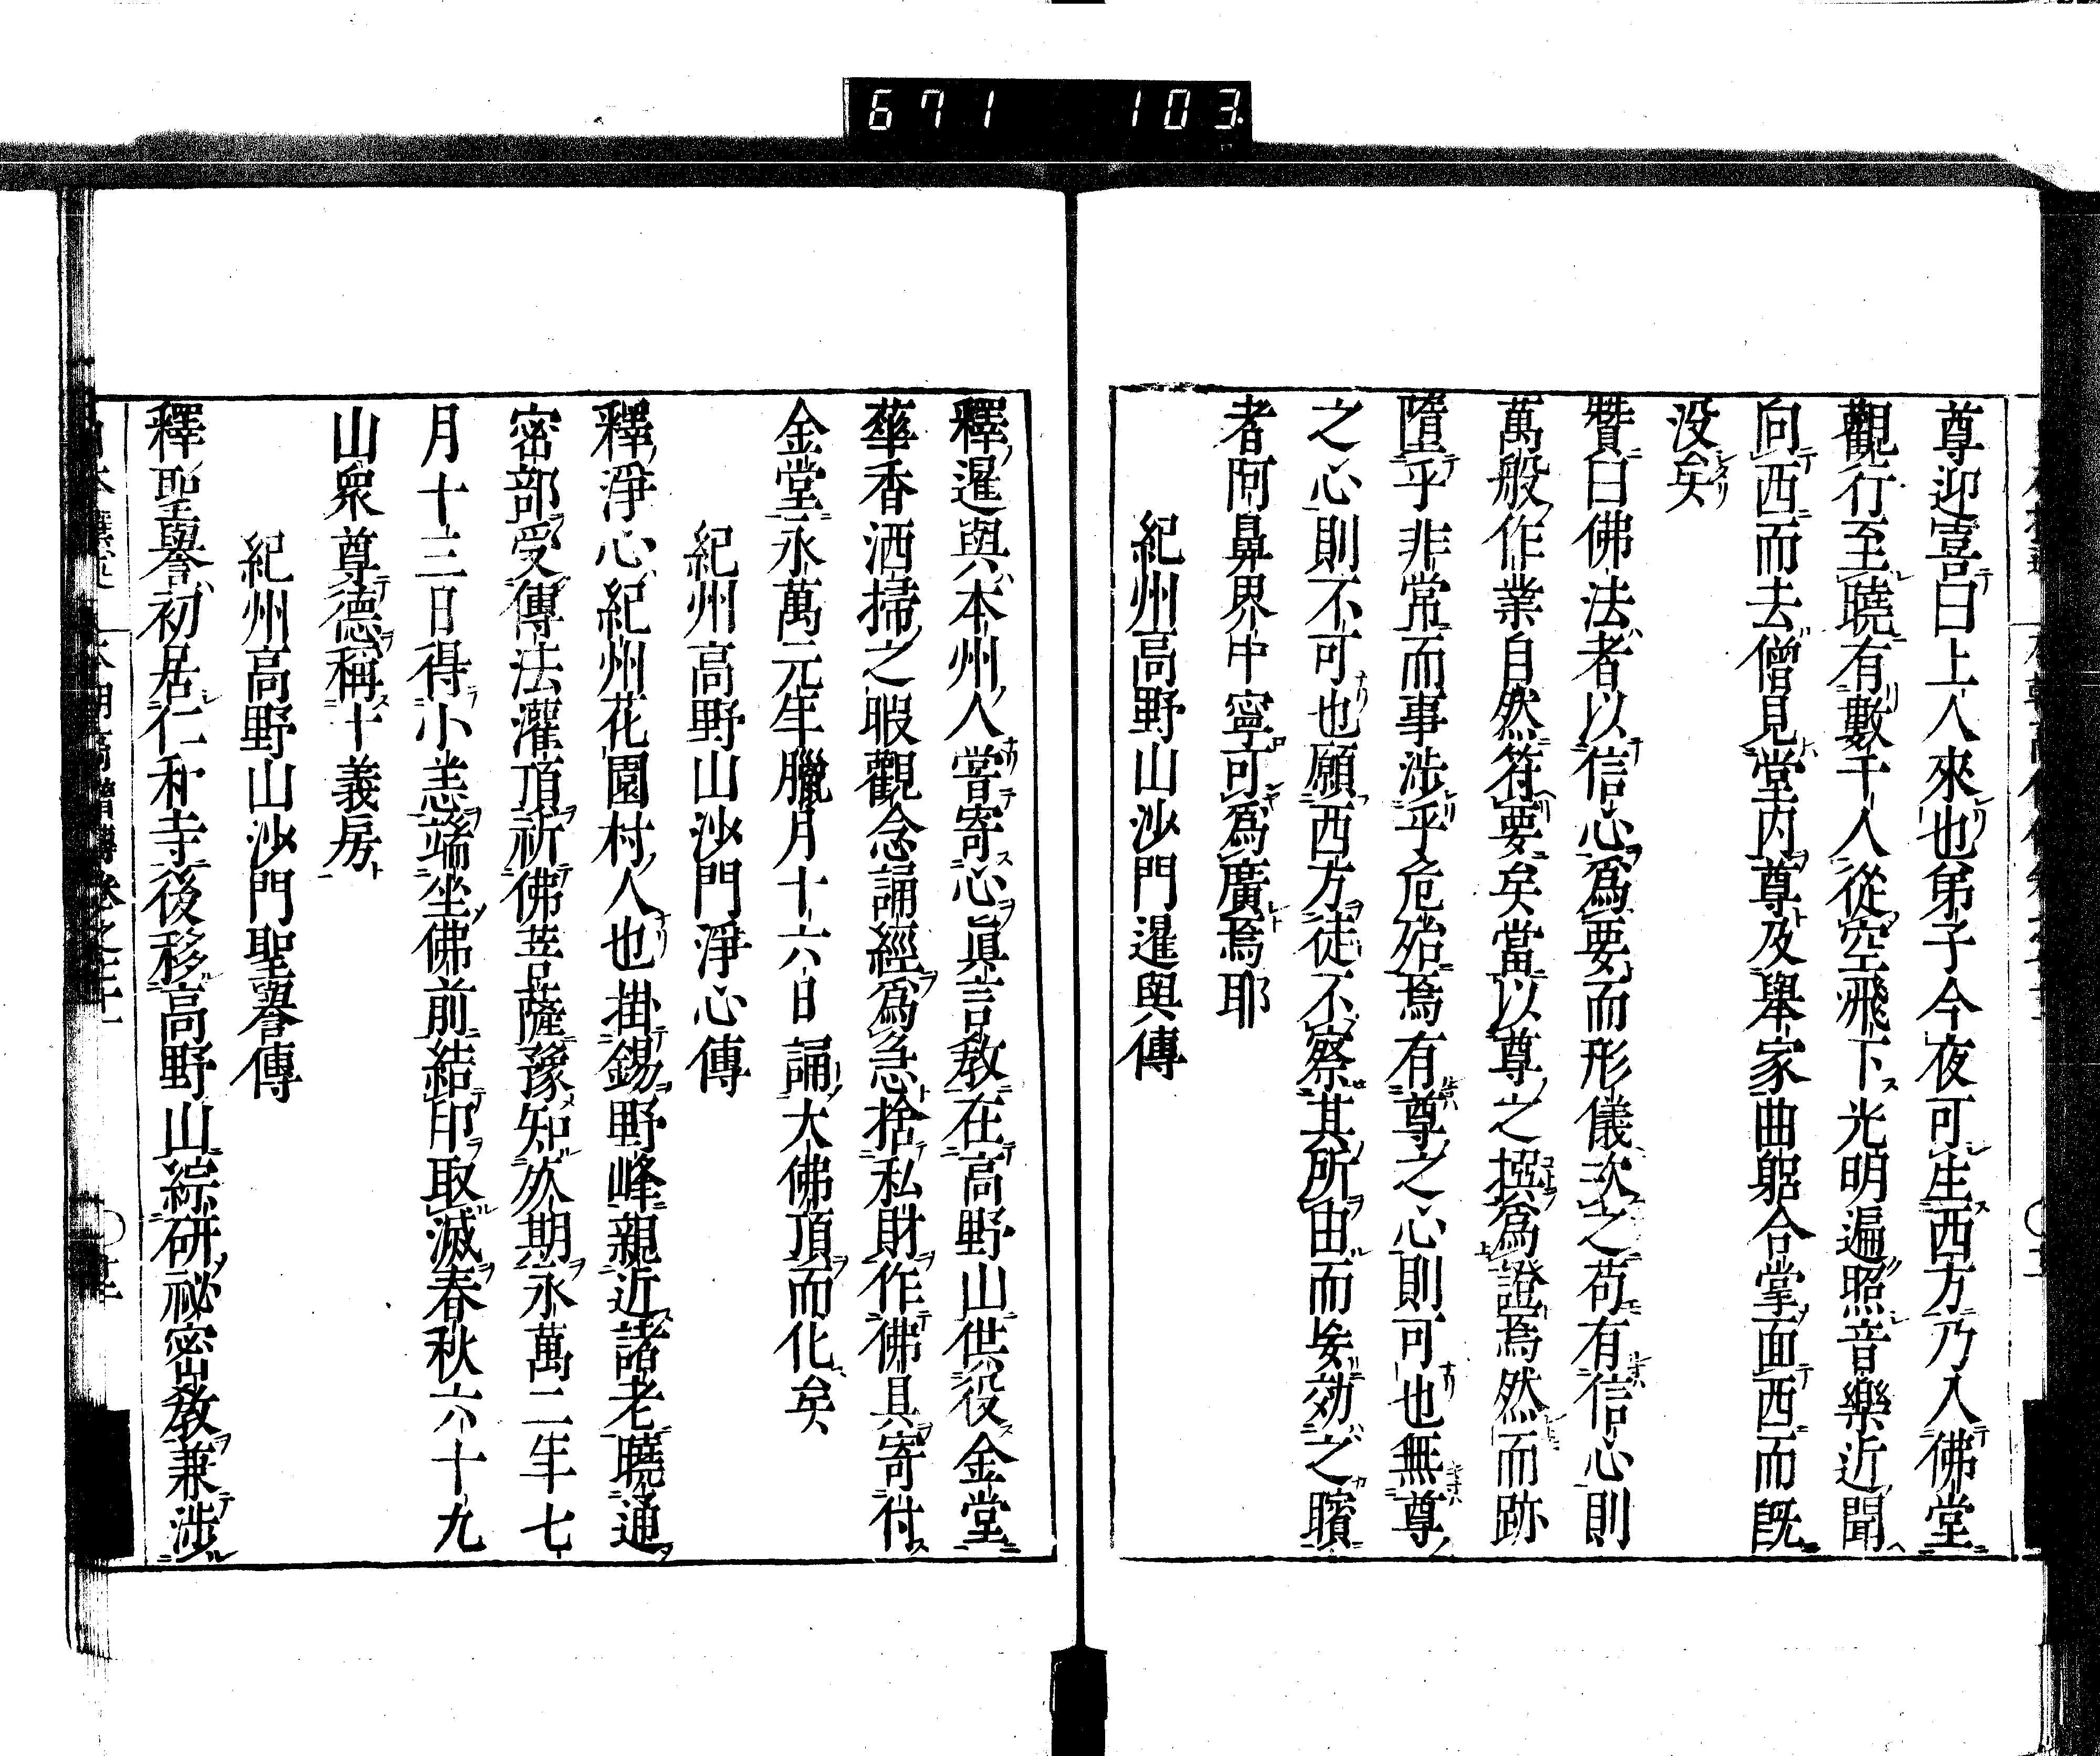 671 103
尊迎喜曰上人來也弟子今夜可生西方乃入佛堂
觀行至曉有數千人從空飛下光明遍照音樂近聞
向西而去僧見堂内尊及舉家曲躬合掌面西而既
没矣
贊曰佛法者以信心爲要而形儀次之苟有信心則
萬般作業自然符要矣當以尊之撰爲證焉然而跡
墮乎非常而事涉乎危殆焉有尊之心則可也無尊
之心則不可也願西方徒不察其所由而妄効之
者阿鼻界中寧可爲廣焉耶
紀州高野山沙門暹與傳
釋暹與本州人嘗寄心眞言教在高野山供役金堂
華香洒掃之暇觀念誦經爲急捨私財作佛具寄付
金堂永萬元年臘月十六日誦大佛頂而化矣
紀州高野山沙門淨心傳
釋淨心紀州花園村人也掛錫野峰親近諸老曉通
密部受傳法灌頂祈佛菩薩豫知死期永萬二年七
月十三日得小恙端坐佛前結印取滅春秋六十九
山衆尊德稱十義房
紀州高野山沙門聖譽傳
釋聖譽初居仁和寺後移高野山綜研祕密教兼涉